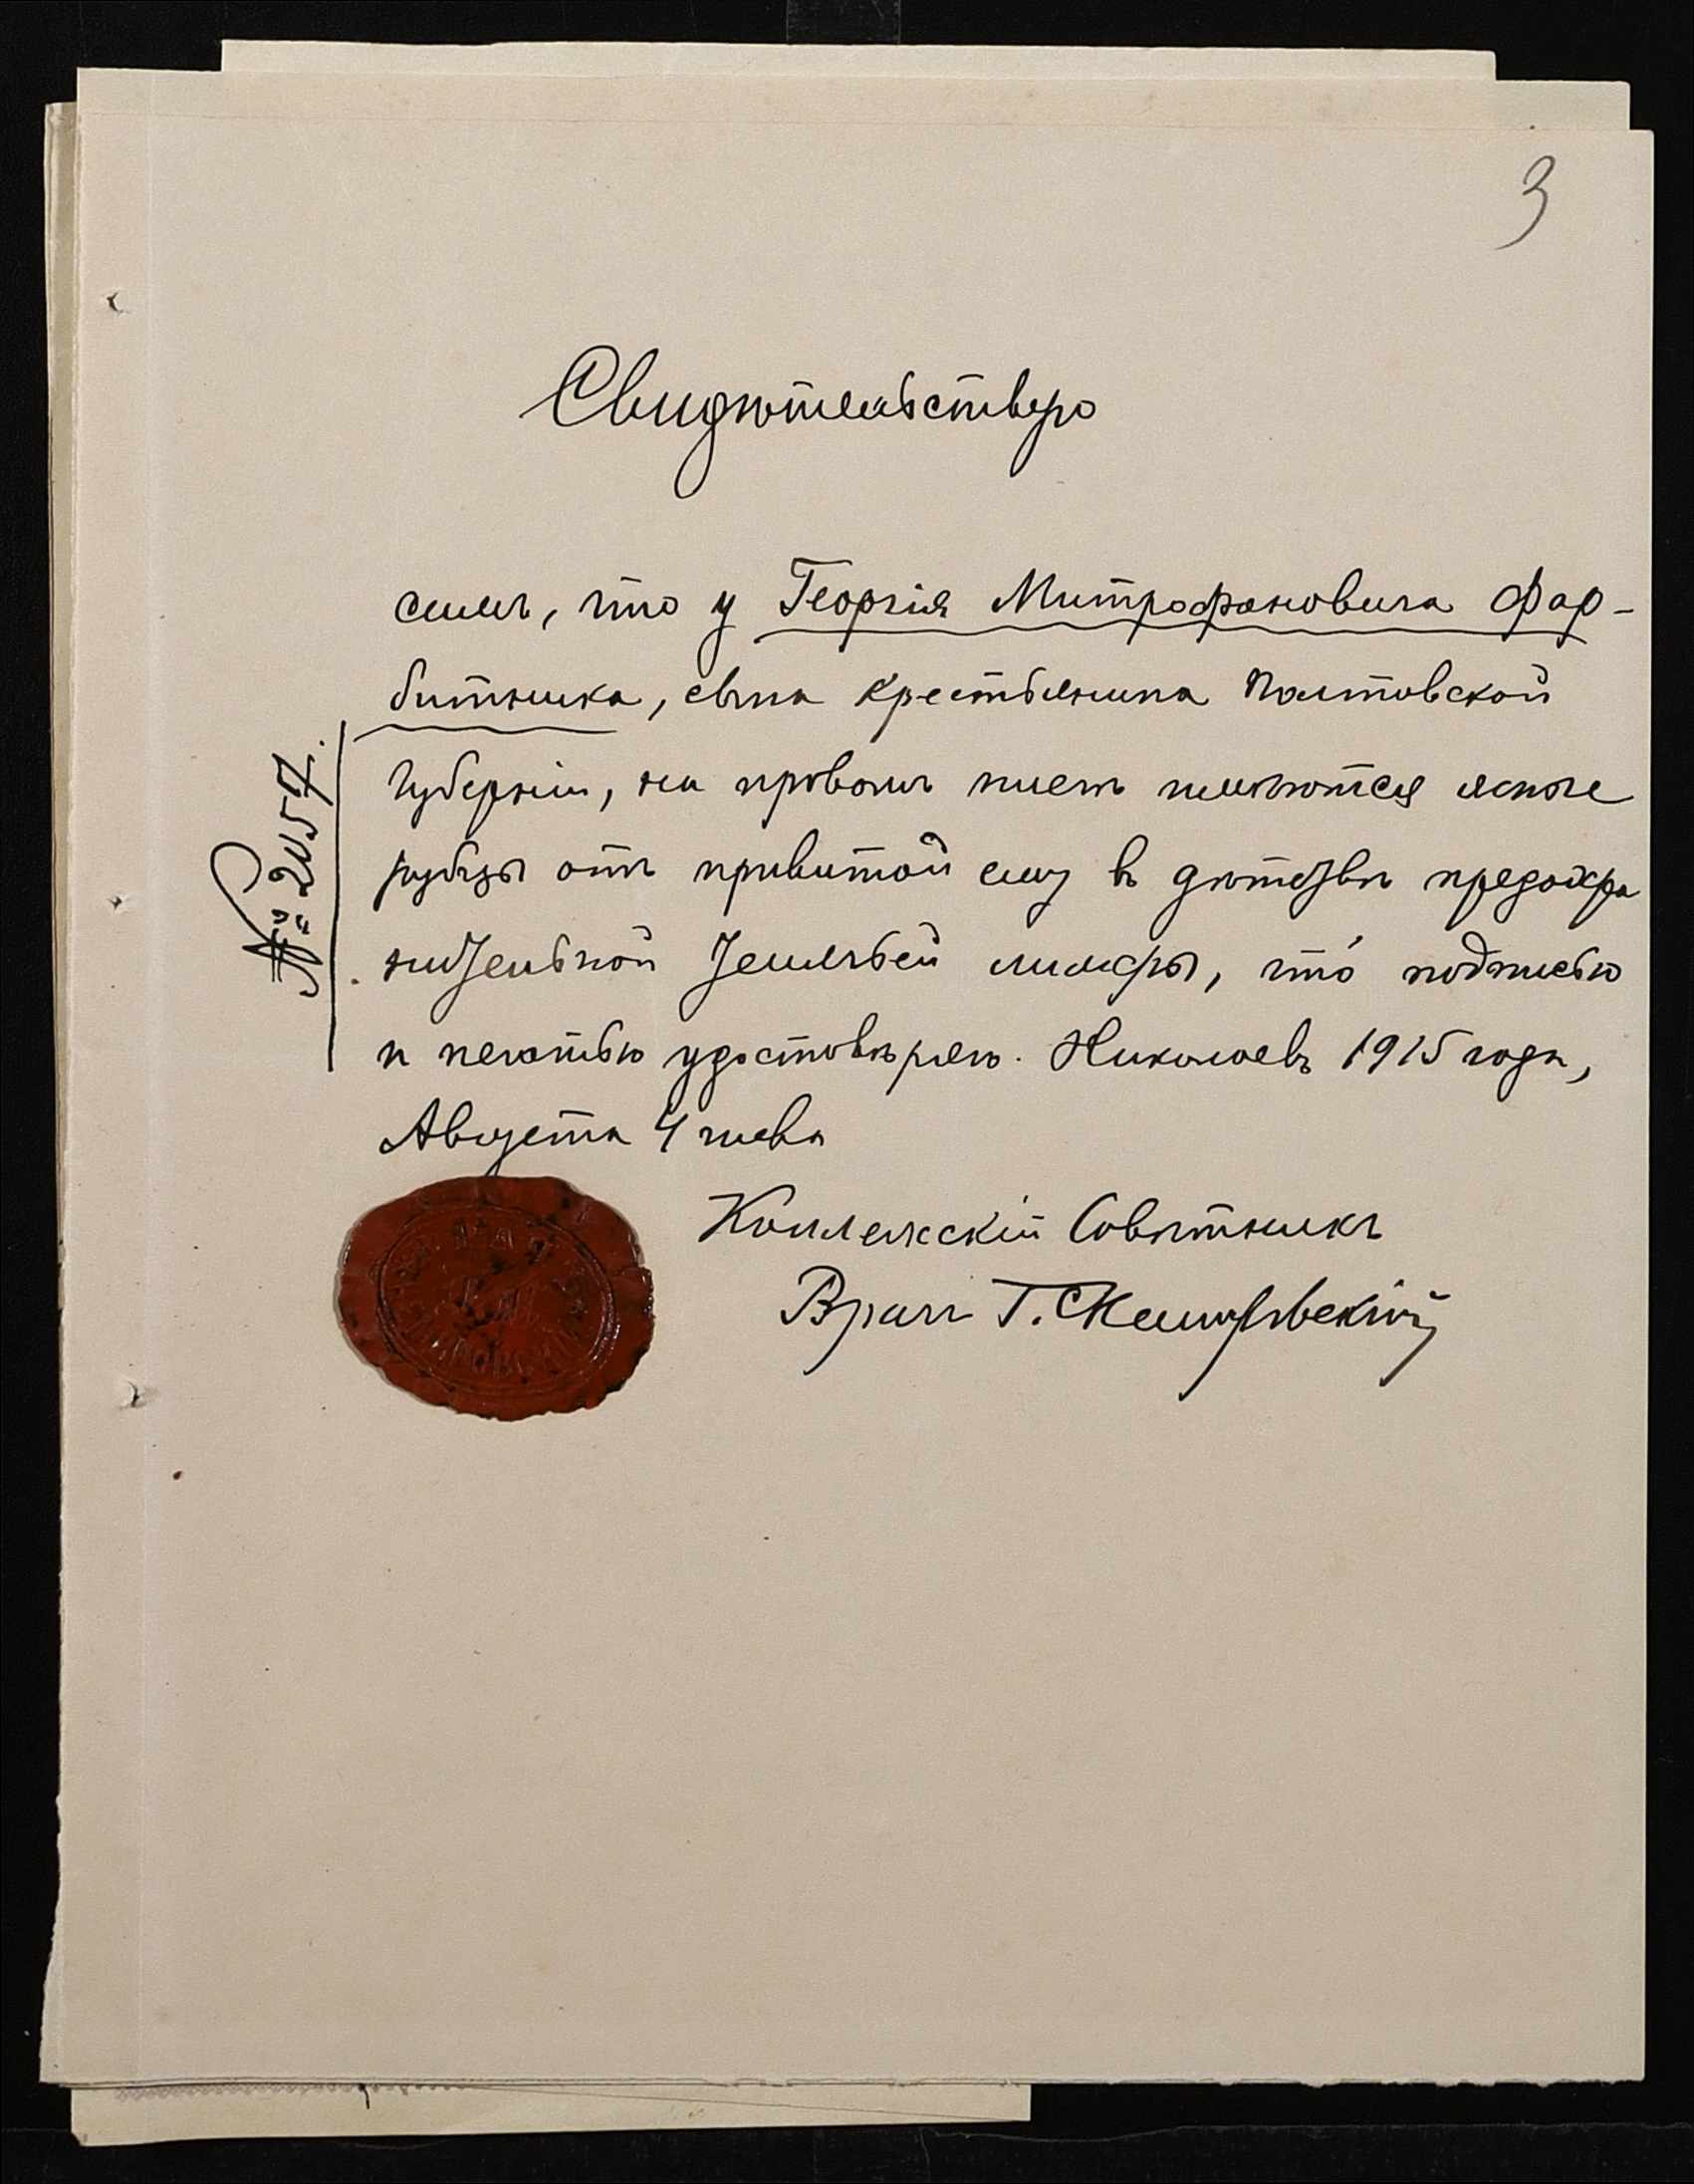 3
Свидѣтельство
симъ, что у Георгія Митрофановича Фар-
битника, сына крестьянина Полтовской
губерніи, на правомъ плечѣ имѣются ясные
рубцы отъ привитой ему въ дѣтствѣ предохра
нительной телячьей лимфы, что подписью
и печатью удостовѣряю. Николаевъ 1915 года,
Августа 4 числа
№ 2057.
Коллежскій Совѣтникъ
Врачъ Г.